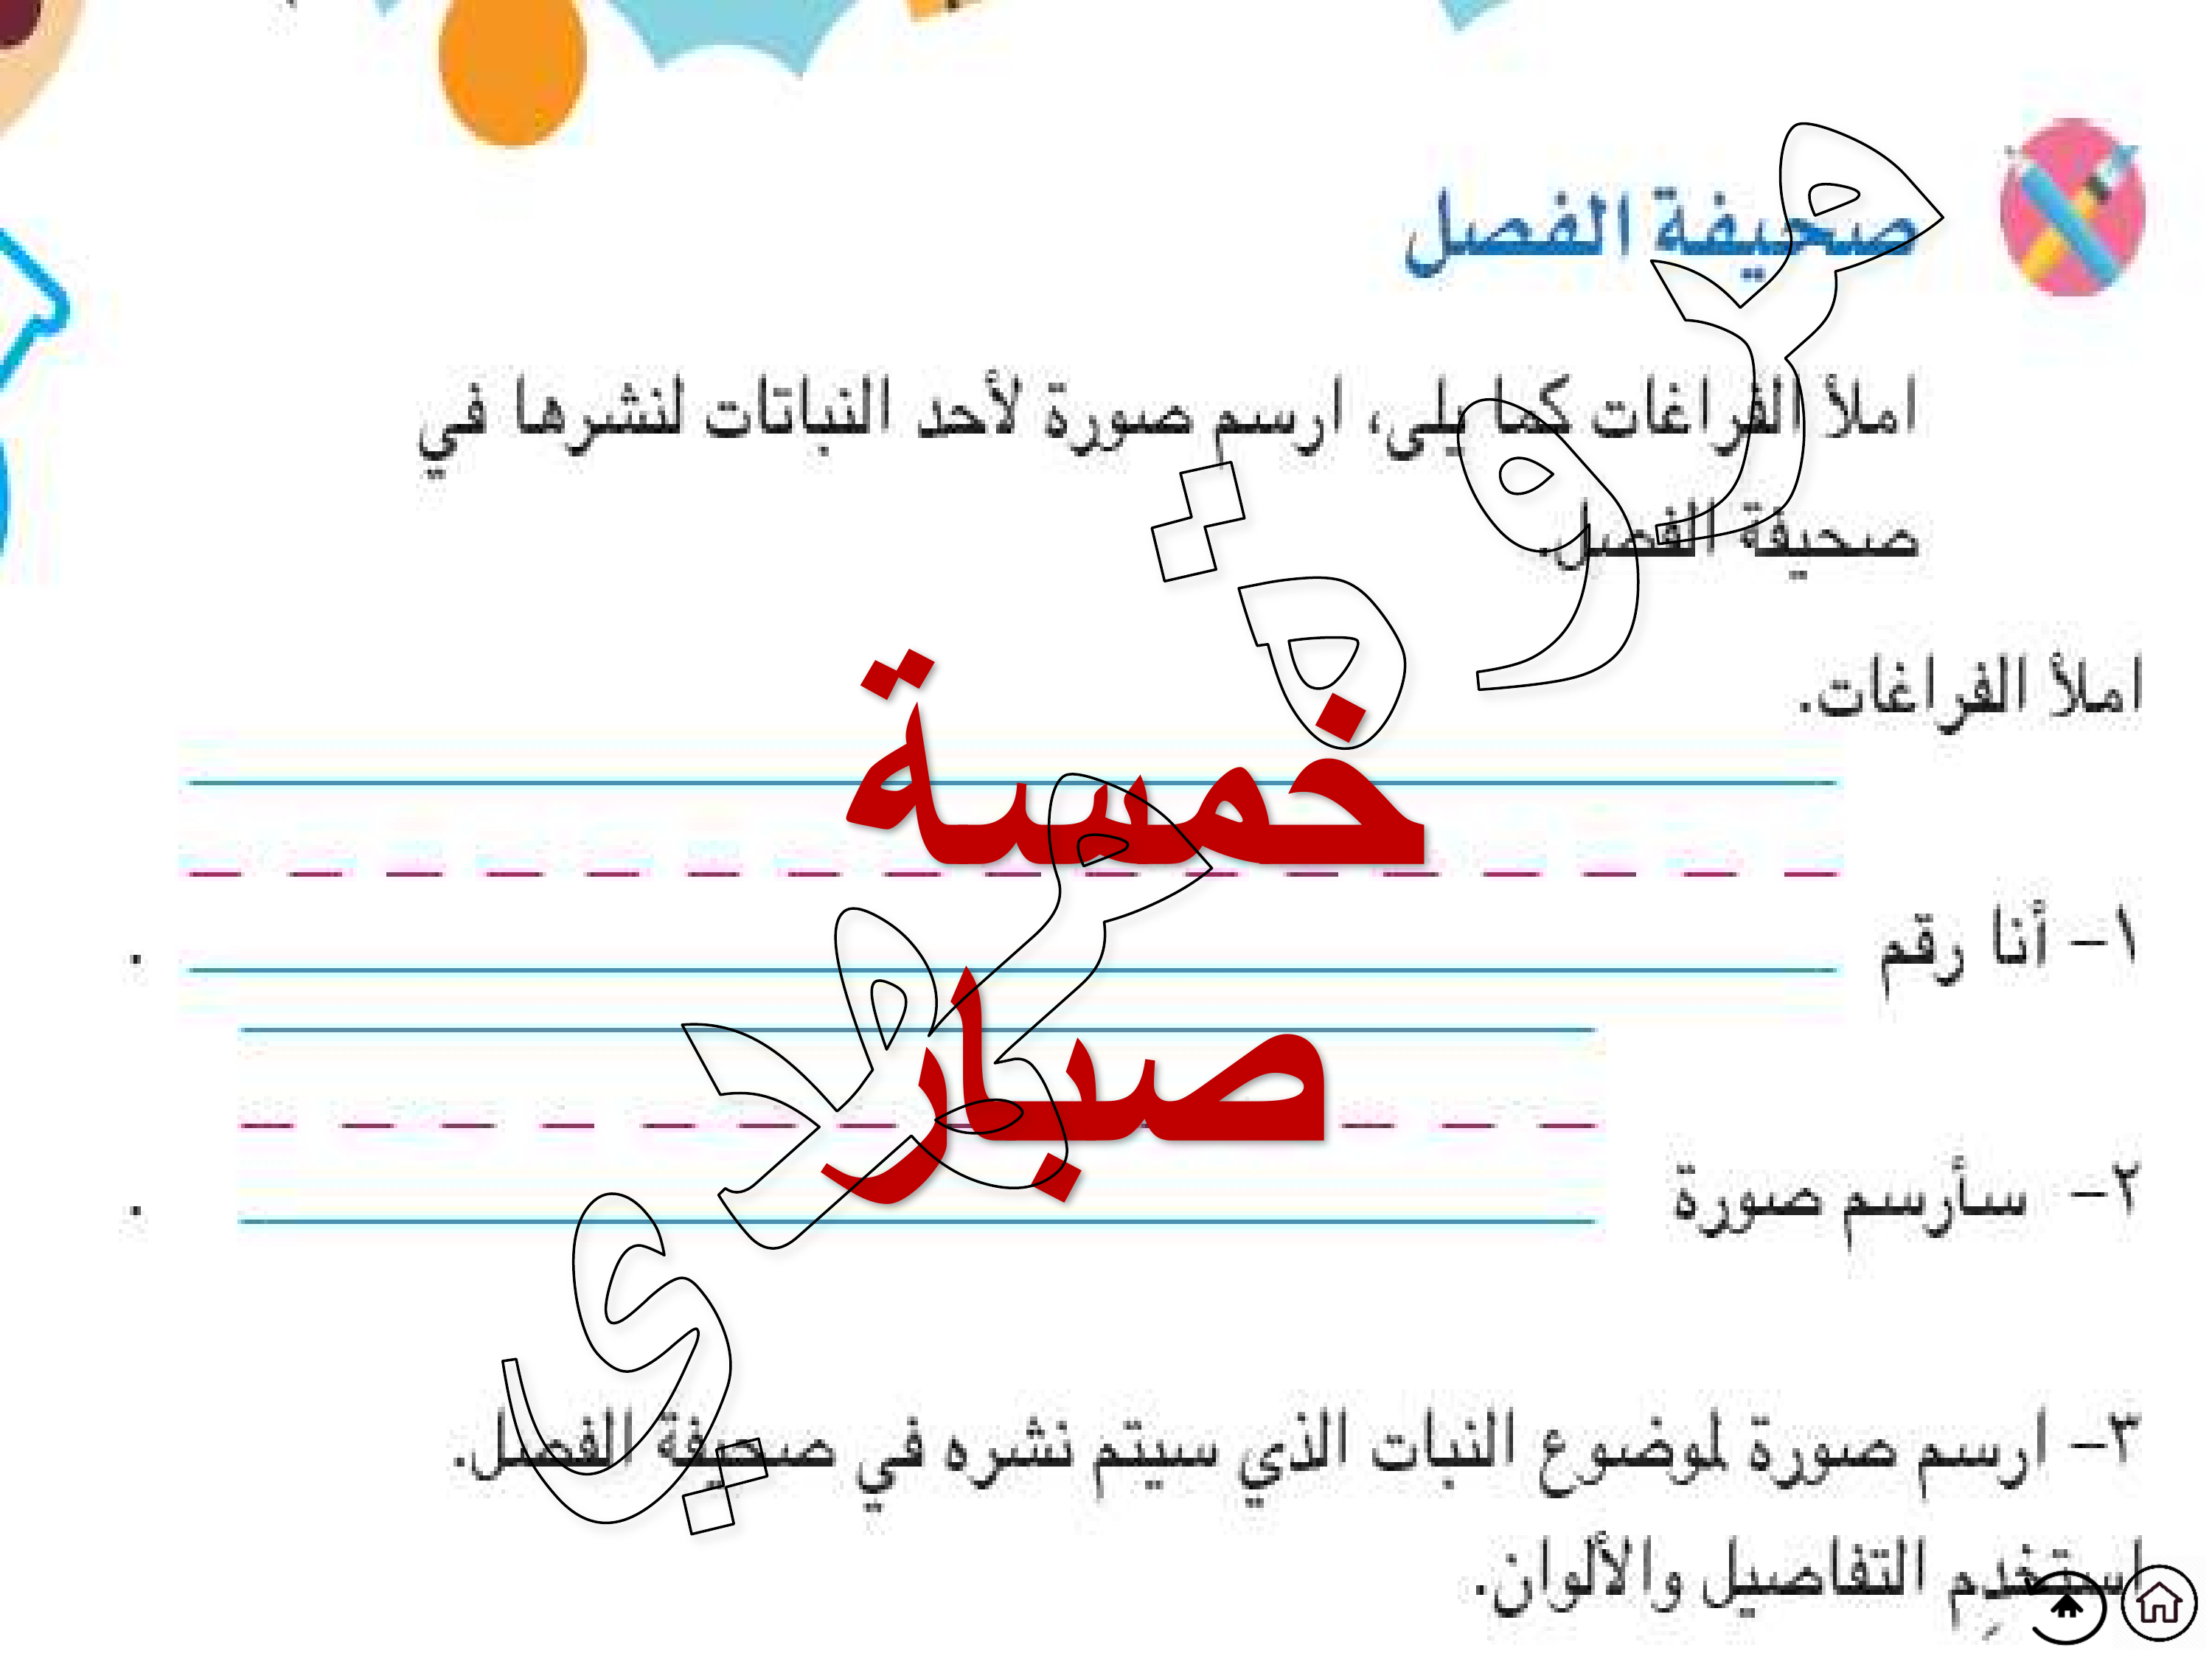 صحيفة الفصل
املأ الفراغات كما يلي، ارسم صورة لأحد النباتات لنشرها في
صحيفة الفصل.
املأ الفراغات.
خمسة
١- أنا رقم .
صبار
٢- سأرسم صورة .
٣- ارسم صورة لموضوع النبات الذي سيتم نشره في صحيفة الفصل.
استخدِم التفاصيل والألوان.